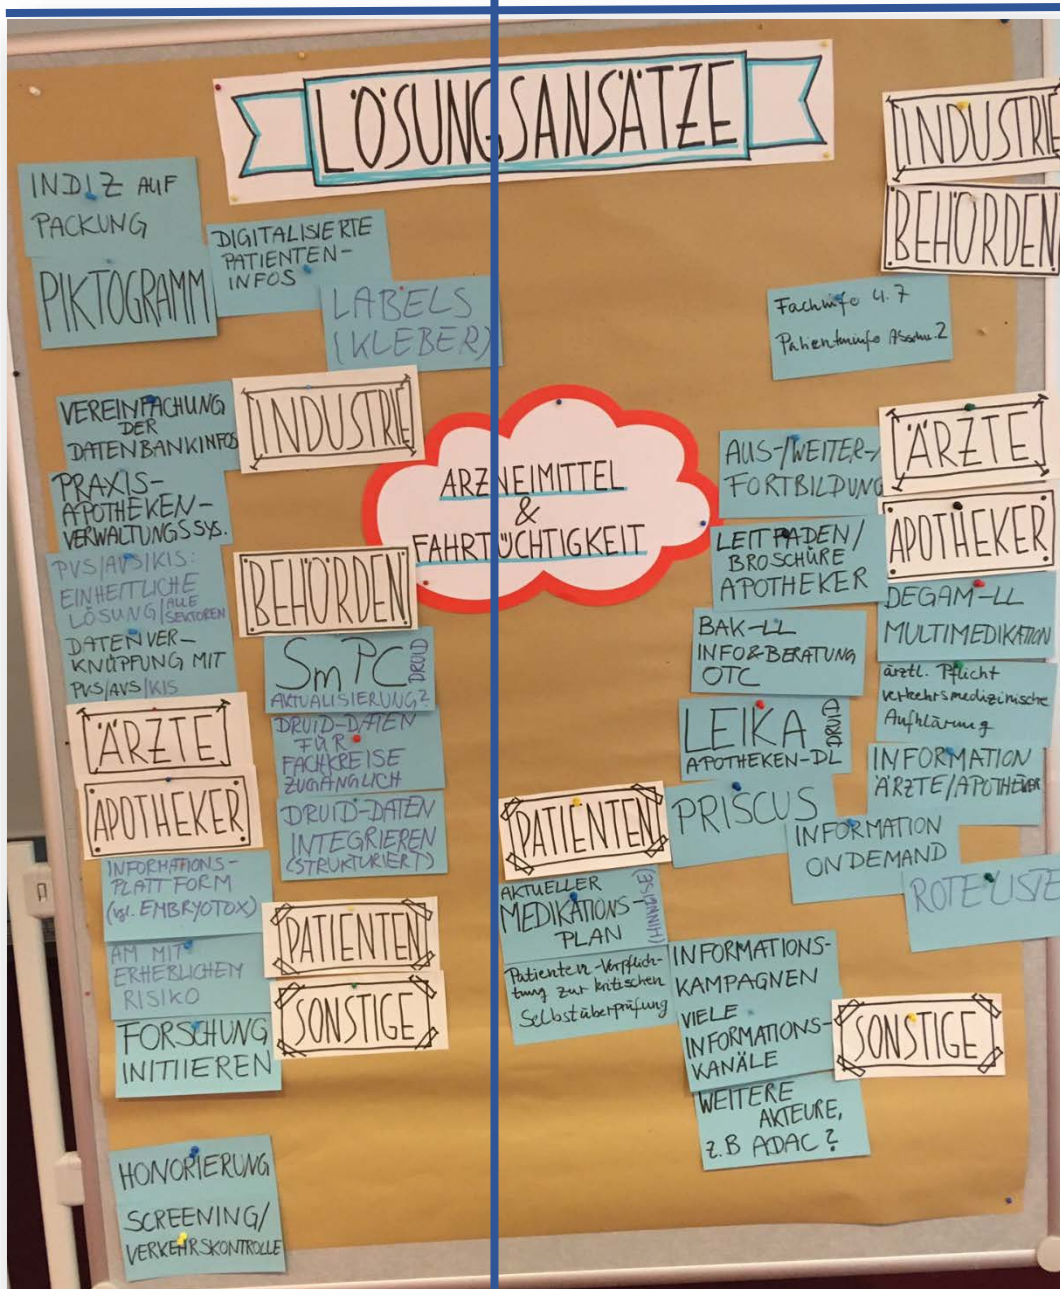 LÖSUNGSANSÄTZE
INDIZ AUF
PACKUNG
PIKTOGRAMM
DIGITALISIERTE
PATIENTEN-
INFOS
LABELS
(KLEBER)
INDUSTRIE
VEREINFACHUNG
DER
DATENBANKINFOS
PRAXIS-
APOTHEKEN-
VERWALTUNGSSYS.
BEHÖRDEN
PVS/AVS/KIS:
EINHEITLICHE
LÖSUNG/ALLE
SEKTOREN
DATENVER-
KNÜPFUNG MIT
PVS/AVS/KIS
SmPC DRUID
AKTUALISIERUNG?
DRUID-DATEN
FÜR
FACHKREISE
ZUGÄNGLICH
DRUID-DATEN
INTEGRIEREN
(STRUKTURIERT)
ÄRZTE
APOTHEKER
INFORMATIONS-
PLATTFORM
(vgl. EMBRYOTOX)
AM MIT
ERHEBLICHEM
RISIKO
FORSCHUNG
INITIIEREN
PATIENTEN
SONSTIGE
HONORIERUNG
SCREENING/
VERKEHRSKONTROLLE
ARZNEIMITTEL
&
FAHRTÜCHTIGKEIT
INDUSTRIE
BEHÖRDEN
Fachinfo 4.7
Patienteninfo 2
ÄRZTE
APOTHEKER
AUS-/WEITER-/
FORTBILDUNG
LEITFADEN/
BROSCHÜRE
APOTHEKER
DEGAM-LL
MULTIMEDIKATION
BAK-LL
INFO&BERATUNG
OTC
ärztl. Pflicht
verkehrsmedizinische
Aufklärung
LEIKA DRUID
APOTHEKEN-DL
INFORMATION
ÄRZTE/APOTHEKER
PRISCUS
INFORMATION
ONDEMAND
ROTE LISTE
PATIENTEN
AKTUELLER
MEDIKATIONS-
PLAN
(HINWEISE)
Patienten-Verpflich-
tung zur kritischen
Selbstüberprüfung
INFORMATIONS-
KAMPAGNEN
VIELE
INFORMATIONS-
KANÄLE
WEITERE
AKTEURE,
z.B ADAC?
SONSTIGE